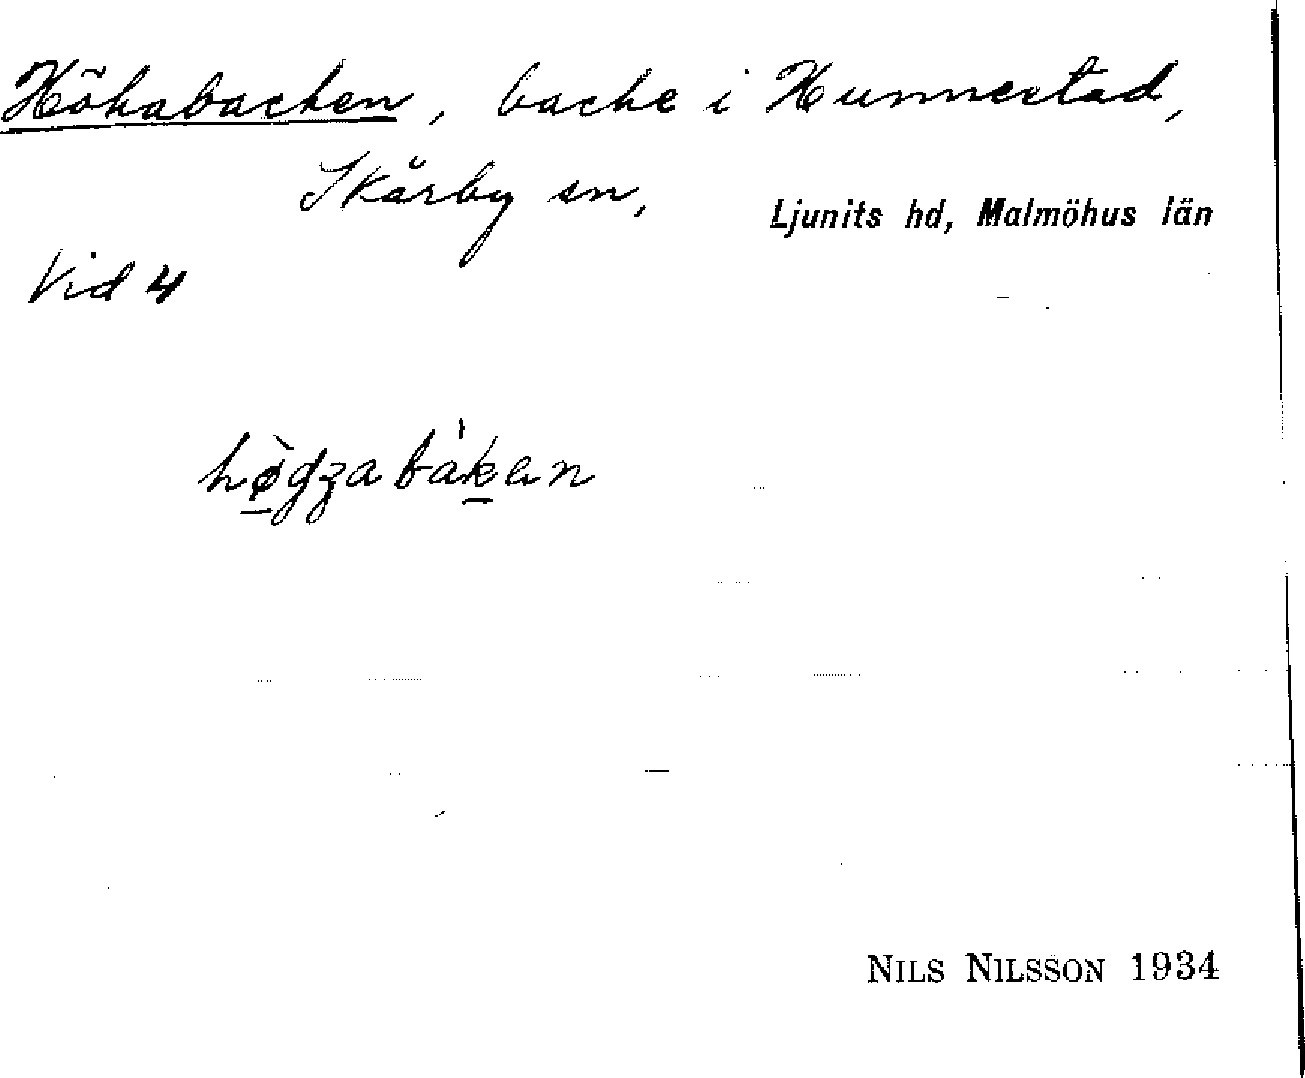 Hökabacken, backe i Hunnestad,
Skårby sn,
Ljunits hd, Malmöhus län
Vid 4
NILS NILSSON 1934